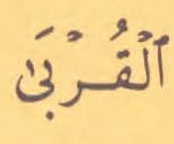 ٱلْقُرْبَىٰ